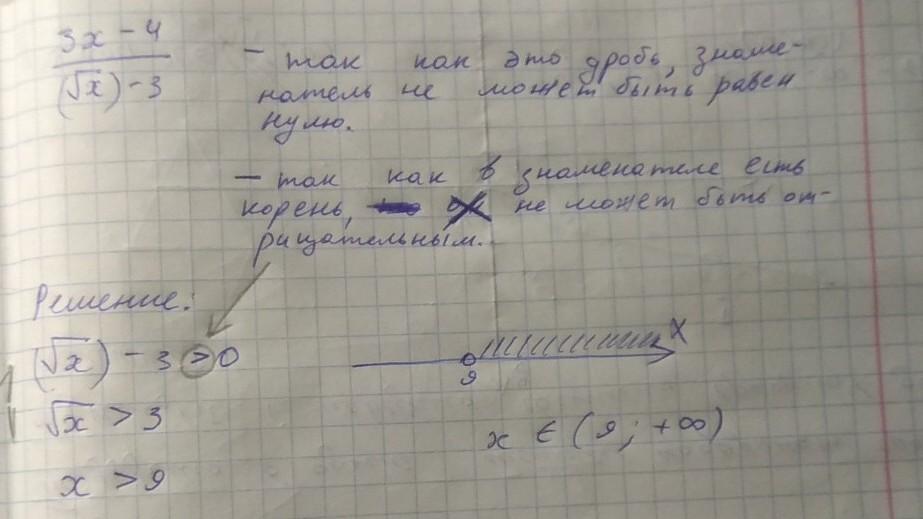 3x - 4
(√x) - 3
- так как это дробь, знаме-
натель не может быть равен
нулю.
- так как в знаменателе есть
корень, x не может быть от-
рицательным.
Решение:
(√x) - 3 > 0
√x > 3
x > 9
X
9
x ∈ (9; +∞)